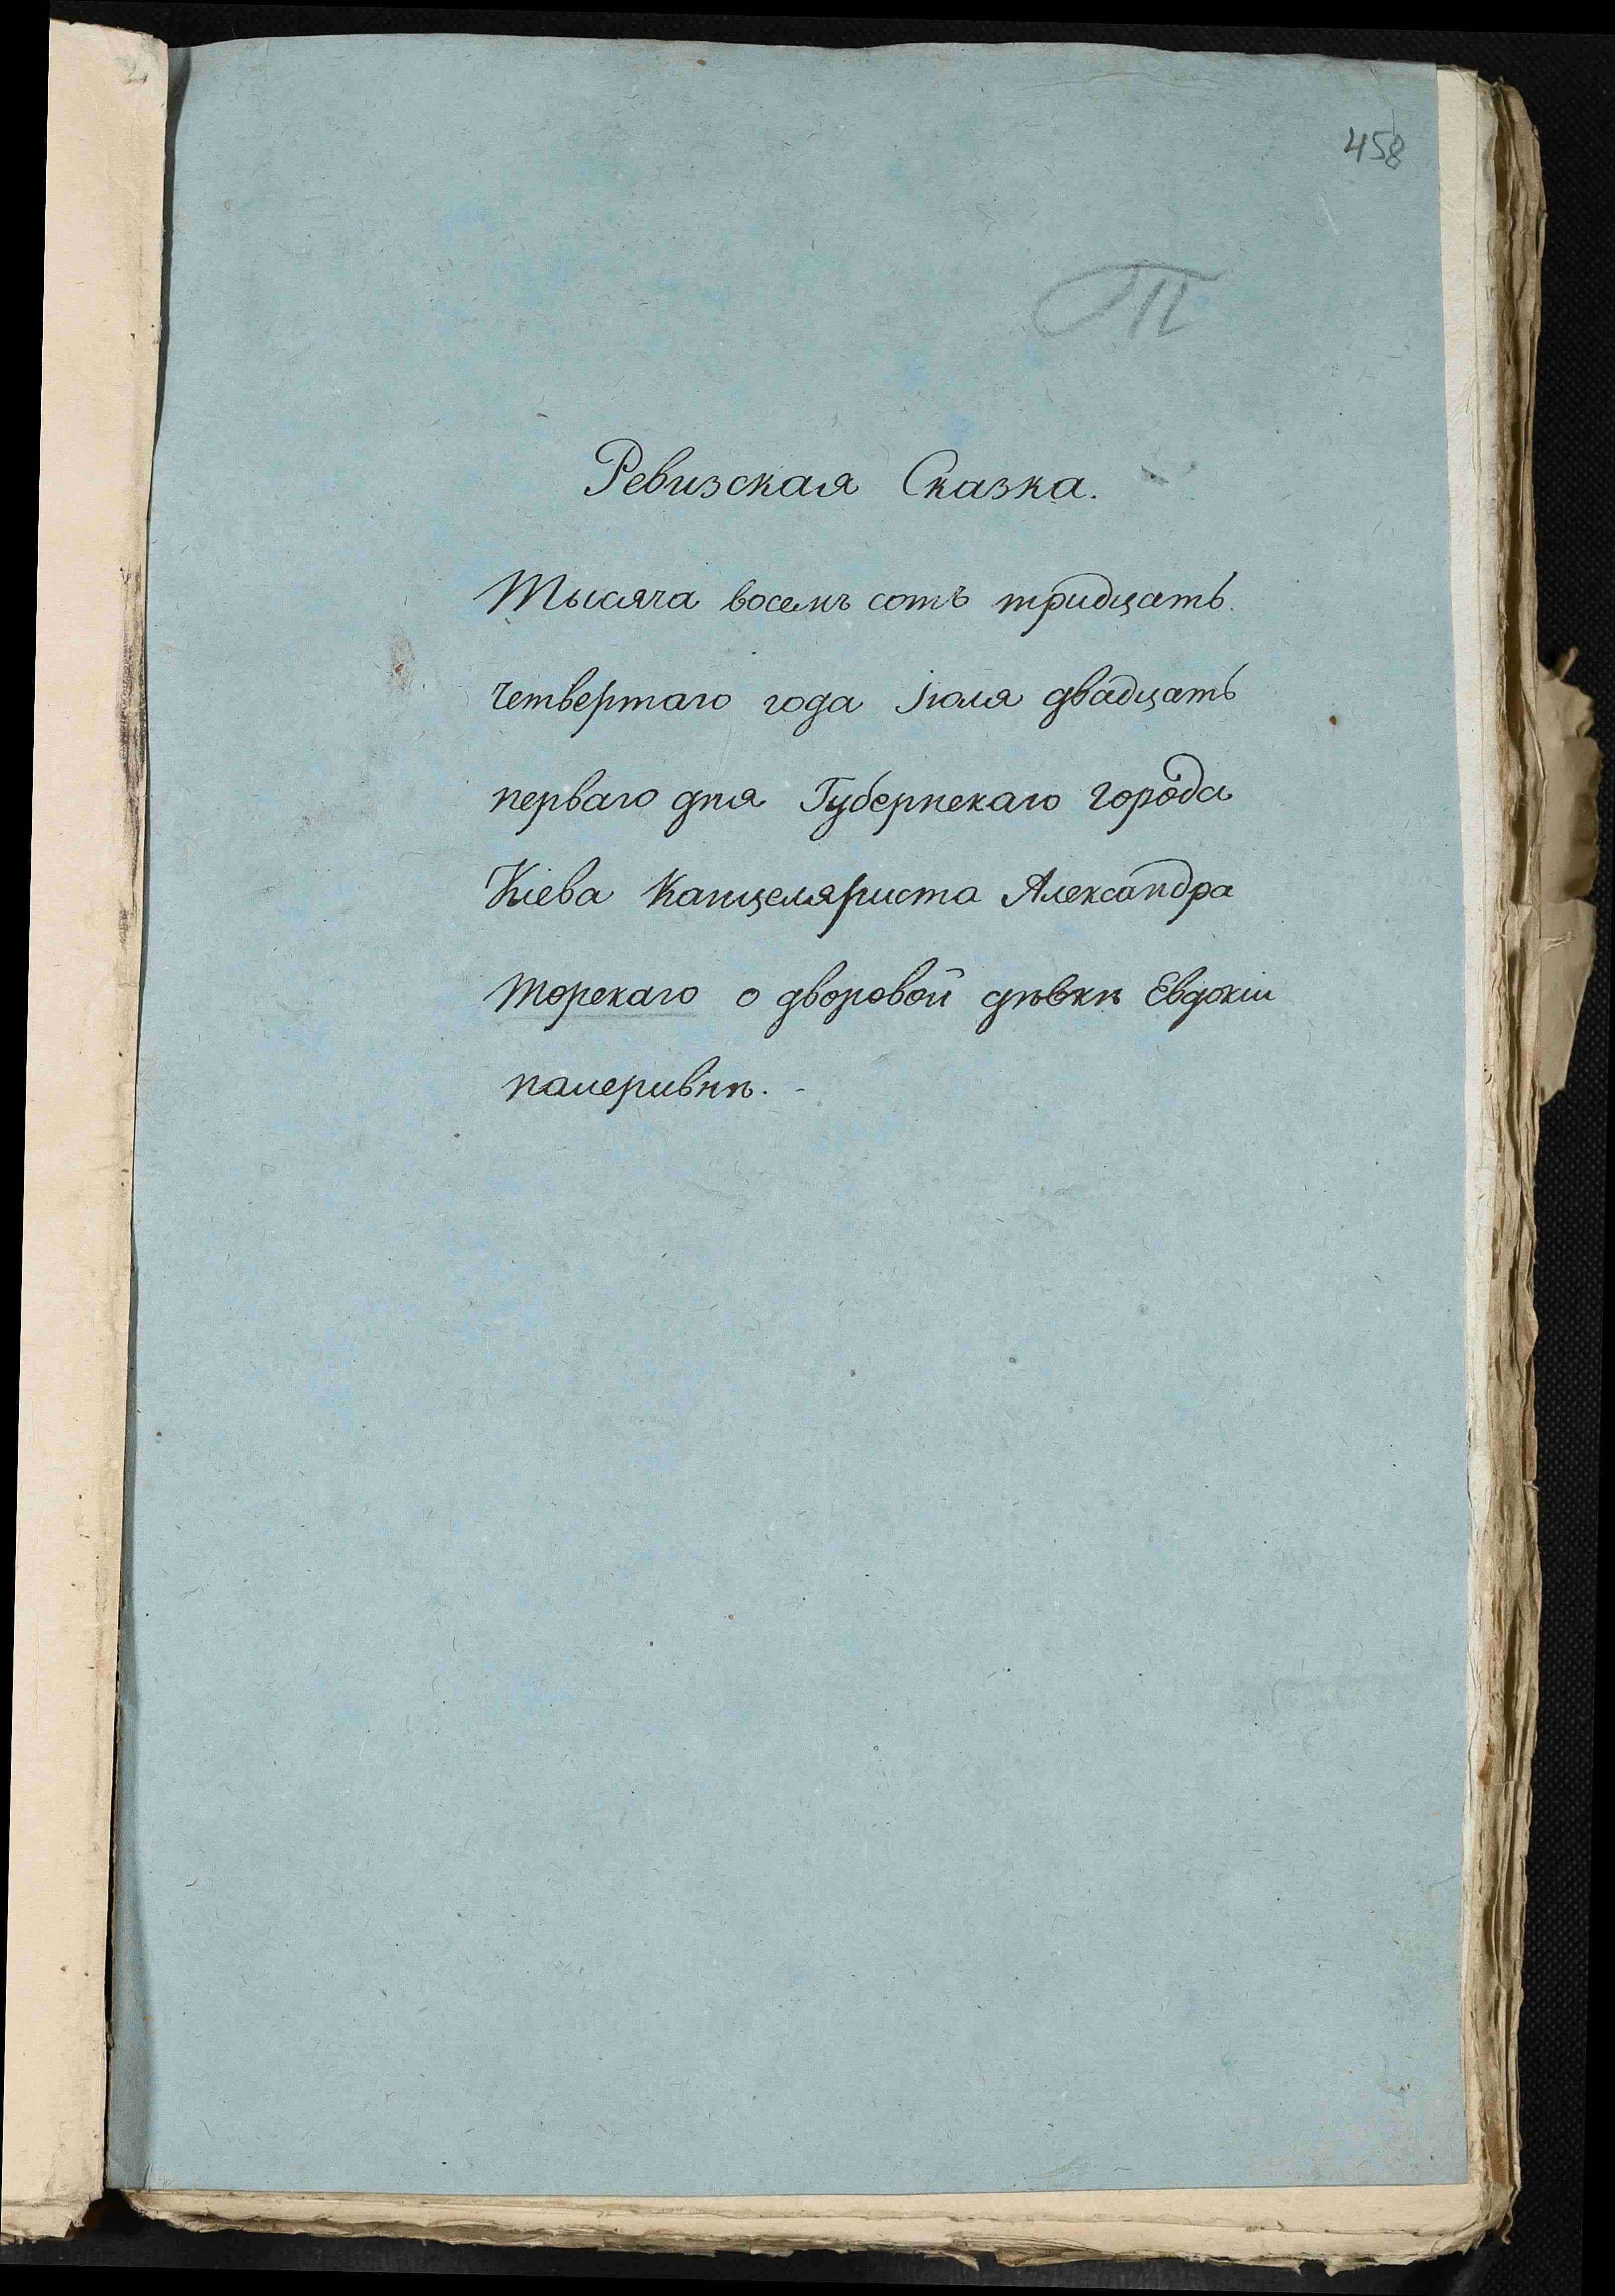 458
Т
Ревизская Сказка.
Тысяча восемъ сотъ тридцать
четвертаго года Іюля двадцать
перваго дня Губернскаго города
Кіева Канцеляриста Александра
Торскаго о дворовой дѣвкѣ Евдокіи